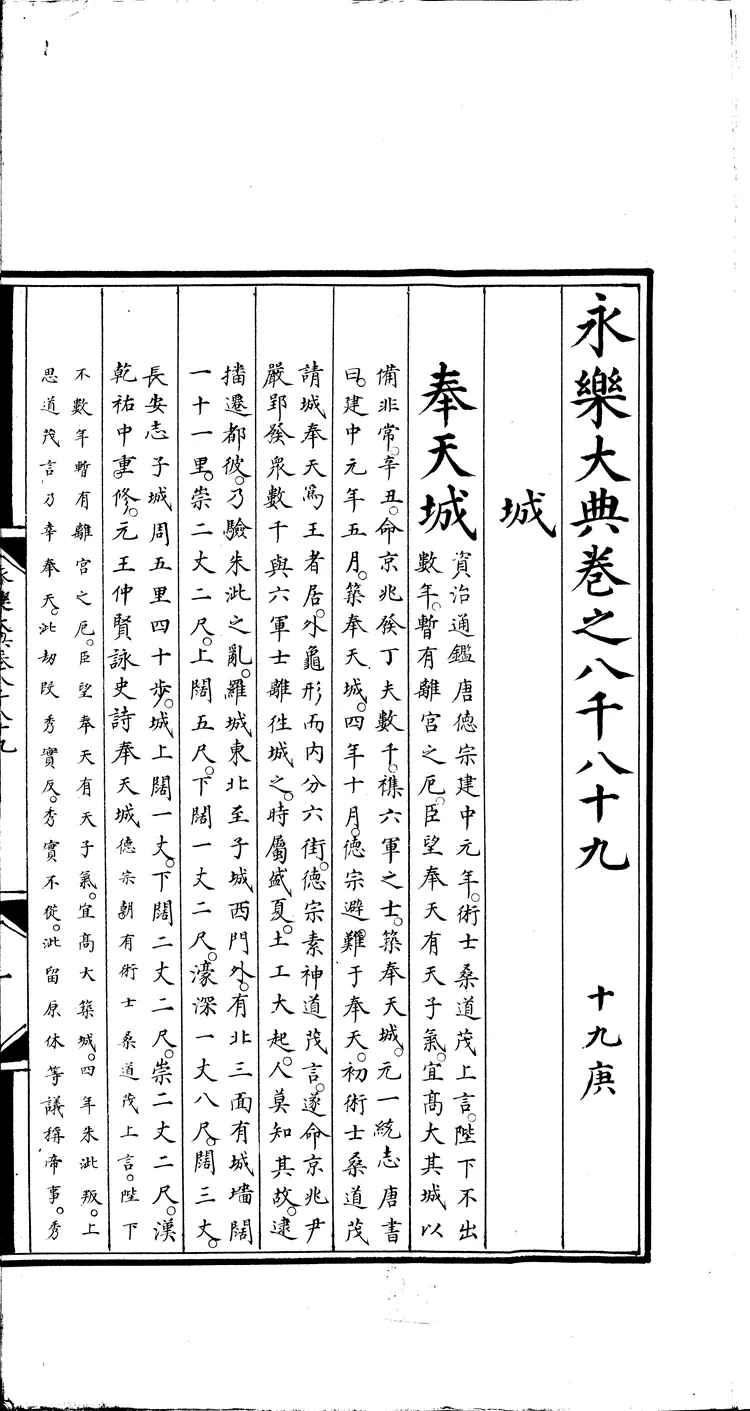 永樂大典卷之八千八十九 十九庚
城
奉天城
資治通鑑唐德宗建中元年。術士桑道茂上言。陛下不出
數年。暫有離宮之厄。臣望奉天有天子氣。宜髙大其城以
備非常。辛丑。命京兆發丁夫數千。襍六軍之士。築奉天城。元一統志唐書
曰。建中元年五月。築奉天城。四年十月。德宗避難于奉天。初術士桑道茂
請城奉天爲王者居。外龜形而内分六街。德宗素神道茂言。遂命京兆尹
嚴郢發衆數千與六軍士離徃城之。時屬盛夏。土工大起。人莫知其故。逮
播遷都彼。乃驗朱泚之亂。羅城東北至子城西門外。有北三面有城墻闊
一十一里。崇二丈二尺。上闊五尺。下闊一丈二尺。濠深一丈八尺。闊三丈。
長安志子城周五里四十步。城上闊一丈。下闊二丈二尺。崇二丈二尺。漢
乾祐中重修。元王仲賢詠史詩奉天城德宗朝有術士桑道茂上言。陛下
不數年暫有離宮之厄。臣望奉天有天子氣。宜髙大築城。四年朱泚叛。上
思道茂言乃幸奉天。泚刼叚秀實反。秀實不從。泚留原休等議稱帝事。秀